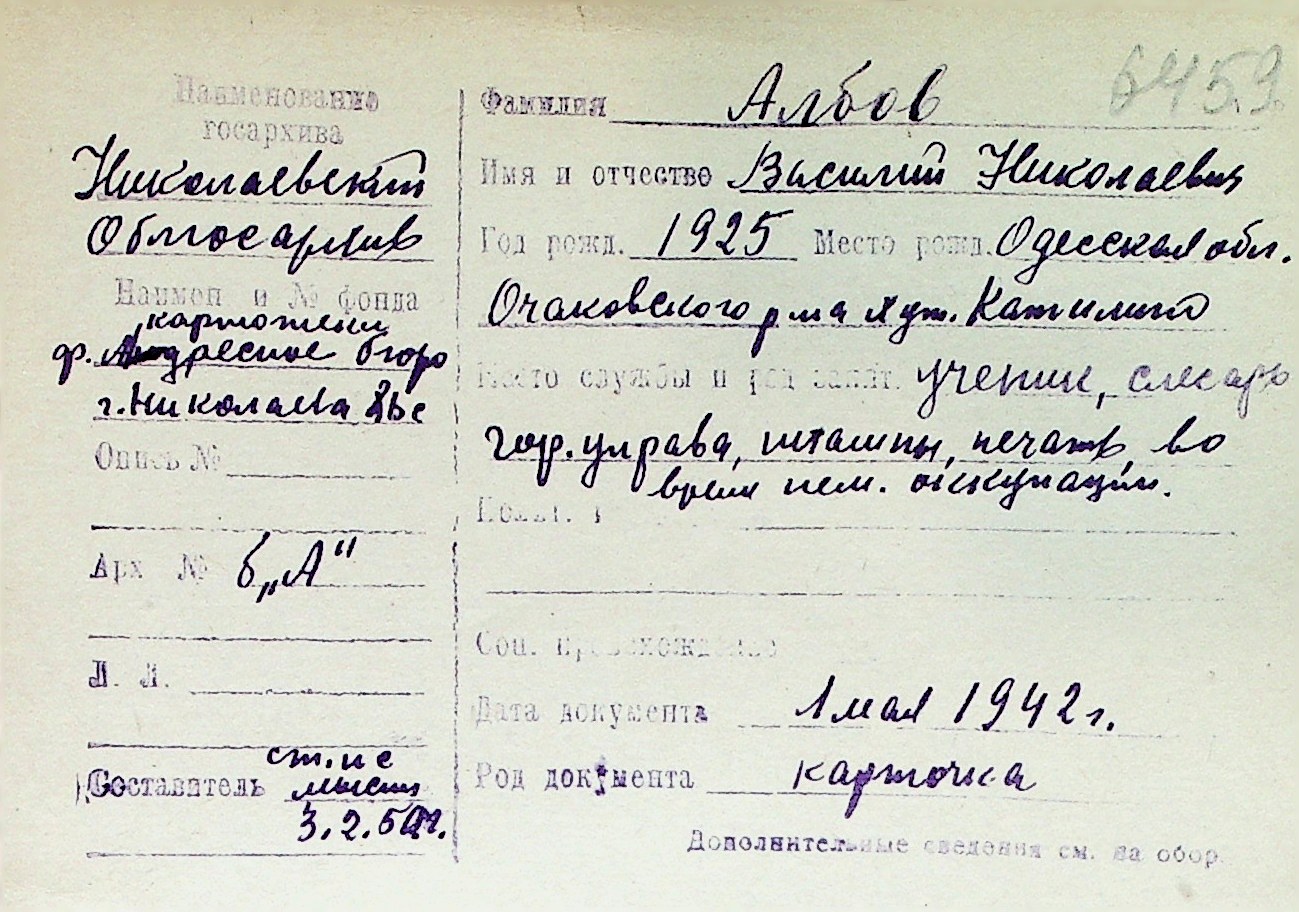 6459
Наименование
госархива
Николаевский
Облгосархив
Наимен и № фонда
картотени
ф. Адресное бюро
г. Николаева
Опись №
Арх № б „А"
Л. Л.
Составитель ст. н с
3.2.50г.
Фамилия Албов
Имя и отчество Василий Николаевич
Год рожд. 1925 Место рожд. Одесская обл.
Очаковского р-на хут.
Место службы и род занят. ученик, слесарь
гор. управа, штампы, печать, во
время нем. оккупации.
Соц. происхождение
Дата документа 1 мая 1942 г.
Род документа карточка
Дополнительные сведения см. на обор.